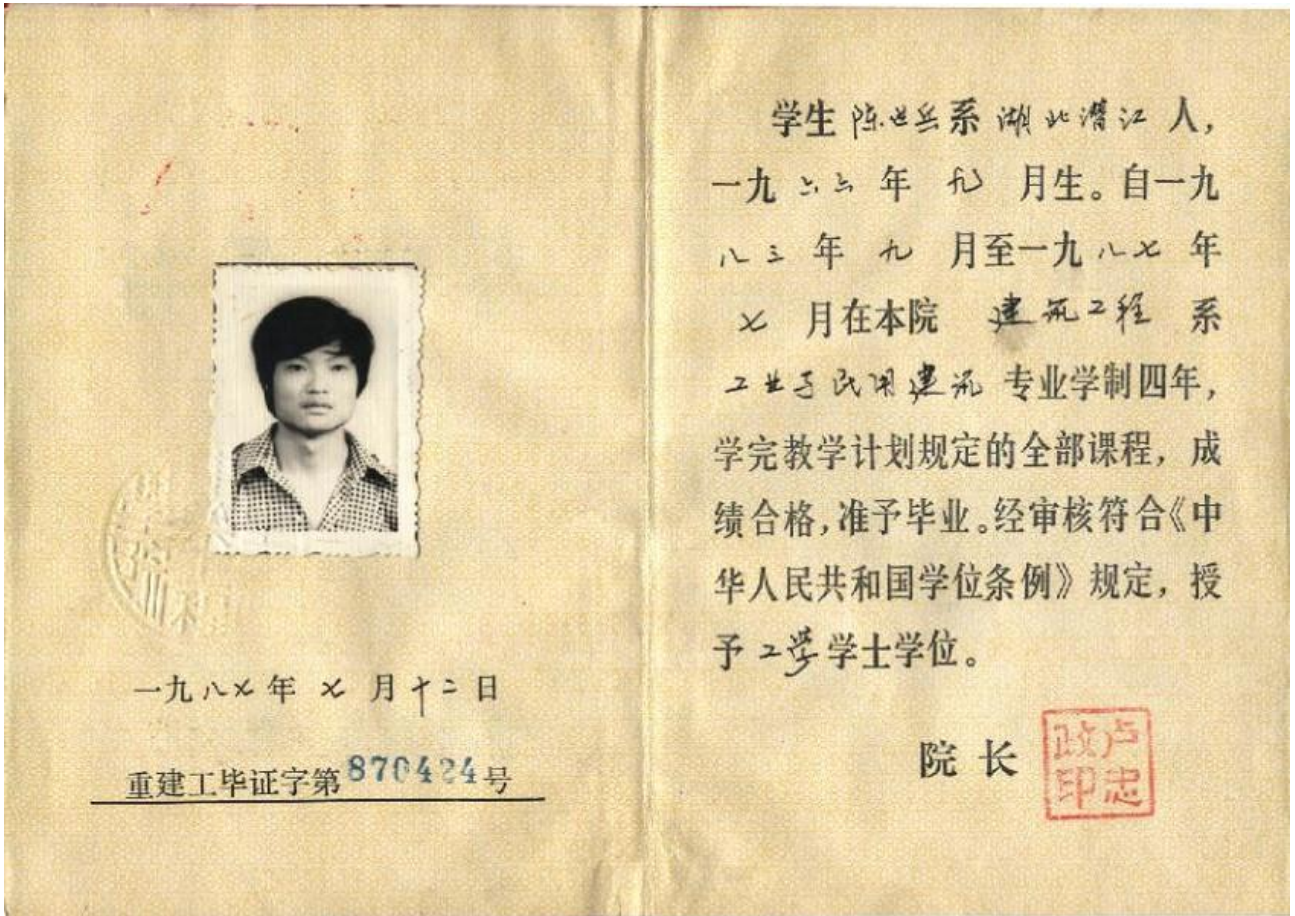 一九八七年七月十二日
重建工毕证字第870424号
学生陈世兵系湖北潜江人,
一九六六年九月生。自一九
八三年九月至一九八七年
七月在本院 建筑工程 系
工业与民用建筑专业学制四年,
学完教学计划规定的全部课程,成
绩合格,准予毕业。经审核符合《中
华人民共和国学位条例》规定,授
予工学学士学位。
院长
卢忠政印